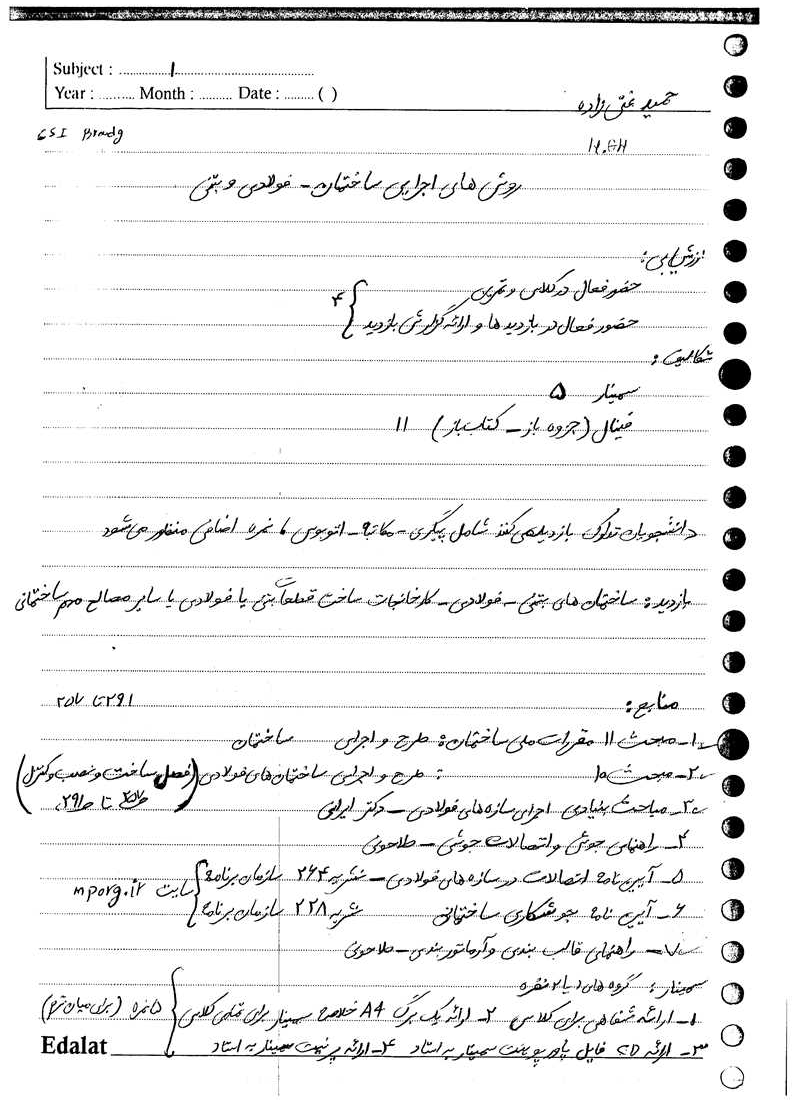 Subject : 1
Year : Month : Date : ( )
حمید غنی زاده
CSI Bradg
H.GH
روش های اجرایی ساختمان - فولادی و بتنی
ارزشیابی:
حضور فعال در کلاس و تمرین
حضور فعال در بازدید ها و ارائه گزارش بازدید
۴
تکالیف:
سمینار ۵
فینال (جزوه باز - کتاب باز) ۱۱
دانشجویان تدارک بازدید می کنند شامل پیگیری - مکاتبه - اتوبوس نمره اضافی منظور می شود
بازدید: ساختمان های بتنی - فولادی - کارخانجات ساخت قطعات بتنی یا فولادی یا سایر مصالح مهم ساختمانی
منابع: ۲۹۱ تا ۲۵۷
۱- مبحث ۱۱ مقررات ملی ساختمان: طرح و اجرای ساختمان
۲- مبحث ۱۰ : طرح و اجرای ساختمان های فولادی (فصل ساخت و نصب و کنترل)
ص ۲۵۷ تا ص ۲۹۱
۳- مباحث بنیادی اجرای سازه های فولادی - دکتر ایرانی
۴- راهنمای جوش و اتصالات جوشی - طاحونی
۵- آیین نامه اتصالات در سازه های فولادی - نشریه ۲۶۴ سازمان برنامه
سایت mporg.ir
۶- آیین نامه جوشکاری ساختمانی نشریه ۲۲۸ سازمان برنامه
۷- راهنمای قالب بندی و آرماتور بندی - طاحونی
سمینار: گروه های ۱ یا ۲ نفره
۱- ارائه شفاهی برای کلاس ۲- ارائه یک برگ A4 خلاصه سمینار برای تمامی کلاس ۵ نمره (برای میان ترم)
۳- ارائه CD فایل پاورپوینت سمینار به استاد ۴- ارائه پرینت سمینار به استاد
Edalat